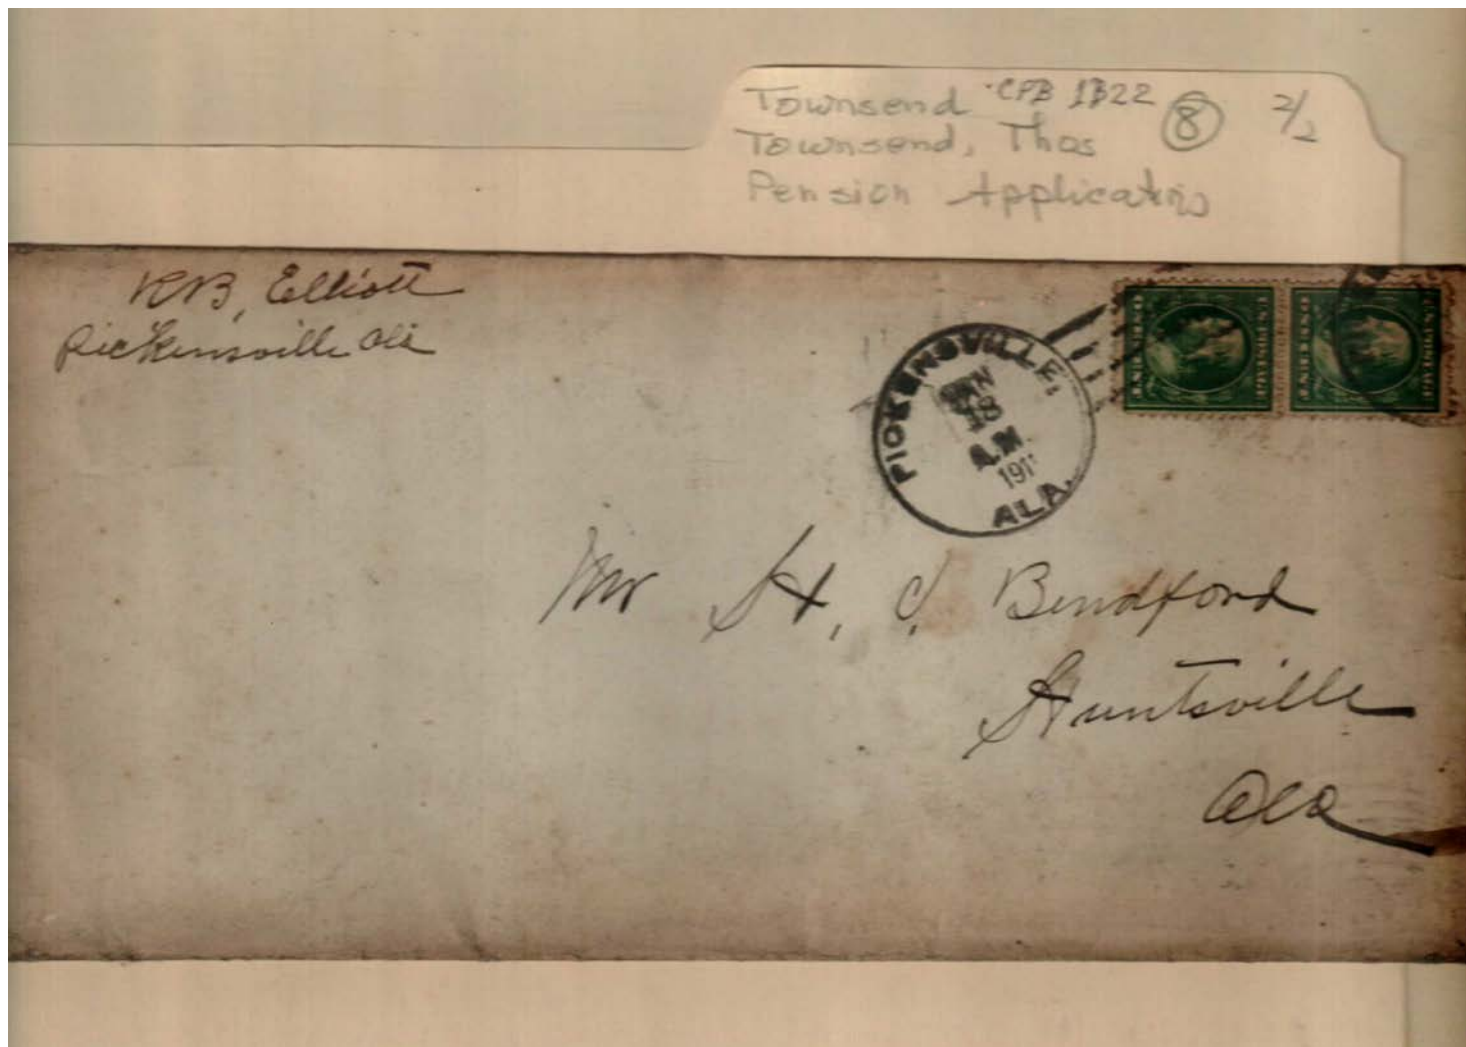 Townsend CFB 1B22 8 2/2
Townsend, Thos
Pension Applications
RB, Elliott
Pickensville Ala
PICKENSVILLE,
JAN
18
A.M.
191
ALA.
Mr H, C, Bendford
Huntsville
Ala